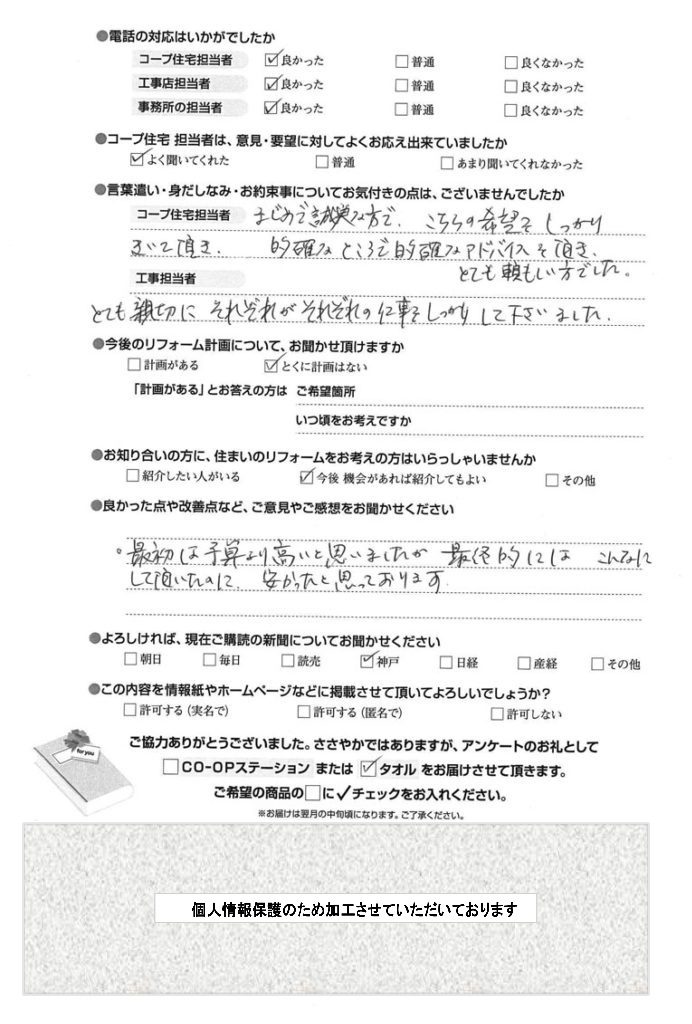 ●電話の対応はいかがでしたか
コープ住宅担当者 ☑良かった □普通 □良くなかった
工事店担当者 ☑良かった □普通 □良くなかった
事務所の担当者 ☑良かった □普通 □良くなかった
●コープ住宅 担当者は、意見・要望に対してよくお応え出来ていましたか
☑よく聞いてくれた □普通 □あまり聞いてくれなかった
●言葉遣い・身だしなみ・お約束事についてお気付きの点は、ございませんでしたか
コープ住宅担当者 まじめで誠実な方で、こちらの希望をしっかり
きいて頂き、 的確なところで的確なアドバイスを頂き、
とても頼もしい方でした。
工事担当者
とても親切に それぞれが それぞれの仕事をしっかりして下さいました.
●今後のリフォーム計画について、お聞かせ頂けますか
□計画がある ☑とくに計画はない
「計画がある」とお答えの方は ご希望箇所
いつ頃をお考えですか
●お知り合いの方に、住まいのリフォームをお考えの方はいらっしゃいませんか
□紹介したい人がいる ☑今後 機会があれば紹介してもよい □その他
●良かった点や改善点など、ご意見やご感想をお聞かせください
。最初は予算より高いと思いましたが 最終的には こんなに
して頂いたのに、安かったと思っております.
●よろしければ、現在ご購読の新聞についてお聞かせください
□朝日 □毎日 □読売 ☑神戸 □日経 □産経 □その他
●この内容を情報紙やホームページなどに掲載させて頂いてよろしいでしょうか?
□許可する（実名で） □許可する（匿名で） □許可しない
for you
ご協力ありがとうございました。ささやかではありますが、アンケートのお礼として
□CO-OPステーション または ☑タオル をお届けさせて頂きます。
ご希望の商品の□に✓チェックをお入れください。
※お届けは翌月の中旬頃になります。ご了承ください。
個人情報保護のため加工させていただいております